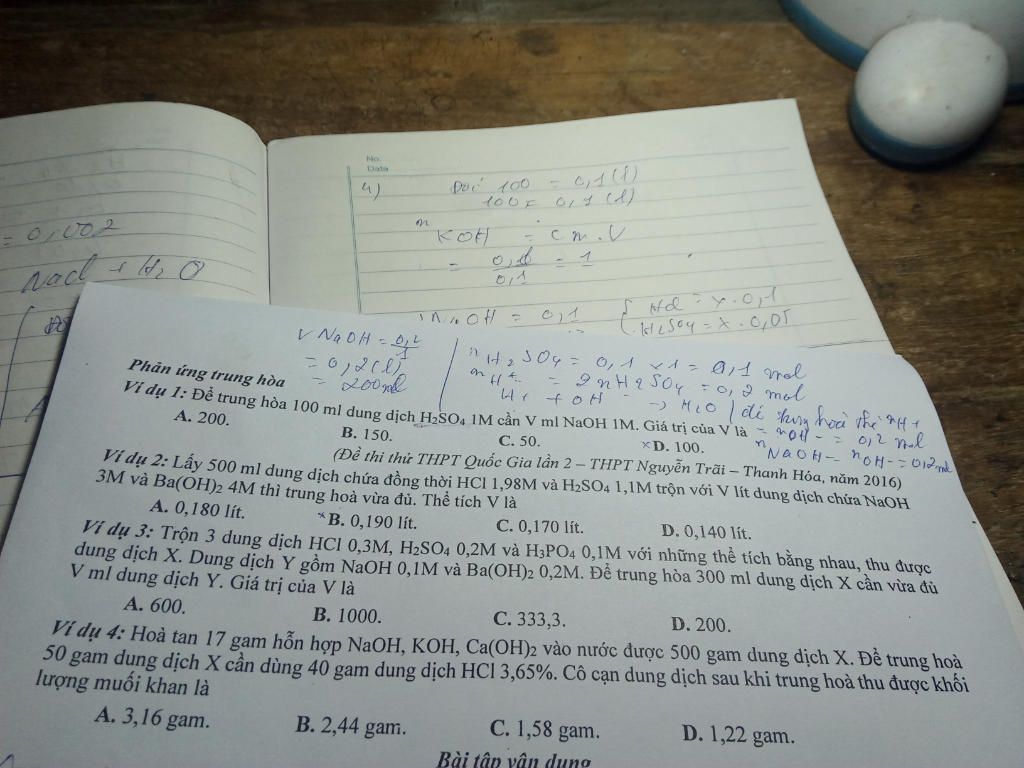 = 0,002
NaCl + H2O
No.
Date
4) Đổi 100 = 0,1 (l)
100 = 0,1 (l)
n KOH = Cm.V
= 0,1 / 0,1 = 1
NaOH = 0,1
{ HCl = x.0,1
H2SO4 = x.0,05
V NaOH = 0,2 / 1
= 0,2 (l)
= 200 ml
n H2SO4 = 0,1 x 1 = 0,1 mol
n H+ = 2nH2SO4 = 0,2 mol
H+ + OH- -> H2O / để trung hoà thì nH+
= nOH- = 0,2 mol
nNaOH = nOH- = 0,2 mol
Phản ứng trung hòa
Ví dụ 1: Để trung hòa 100 ml dung dịch H2SO4 1M cần V ml NaOH 1M. Giá trị của V là
A. 200. B. 150. C. 50. xD. 100.
(Đề thi thử THPT Quốc Gia lần 2 – THPT Nguyễn Trãi – Thanh Hóa, năm 2016)
Ví dụ 2: Lấy 500 ml dung dịch chứa đồng thời HCl 1,98M và H2SO4 1,1M trộn với V lít dung dịch chứa NaOH
3M và Ba(OH)2 4M thì trung hoà vừa đủ. Thể tích V là
A. 0,180 lít. xB. 0,190 lít. C. 0,170 lít. D. 0,140 lít.
Ví dụ 3: Trộn 3 dung dịch HCl 0,3M, H2SO4 0,2M và H3PO4 0,1M với những thể tích bằng nhau, thu được
dung dịch X. Dung dịch Y gồm NaOH 0,1M và Ba(OH)2 0,2M. Để trung hòa 300 ml dung dịch X cần vừa đủ
V ml dung dịch Y. Giá trị của V là
A. 600. B. 1000. C. 333,3. D. 200.
Ví dụ 4: Hoà tan 17 gam hỗn hợp NaOH, KOH, Ca(OH)2 vào nước được 500 gam dung dịch X. Để trung hoà
50 gam dung dịch X cần dùng 40 gam dung dịch HCl 3,65%. Cô cạn dung dịch sau khi trung hoà thu được khối
lượng muối khan là
A. 3,16 gam. B. 2,44 gam. C. 1,58 gam. D. 1,22 gam.
Bài tập vận dụng